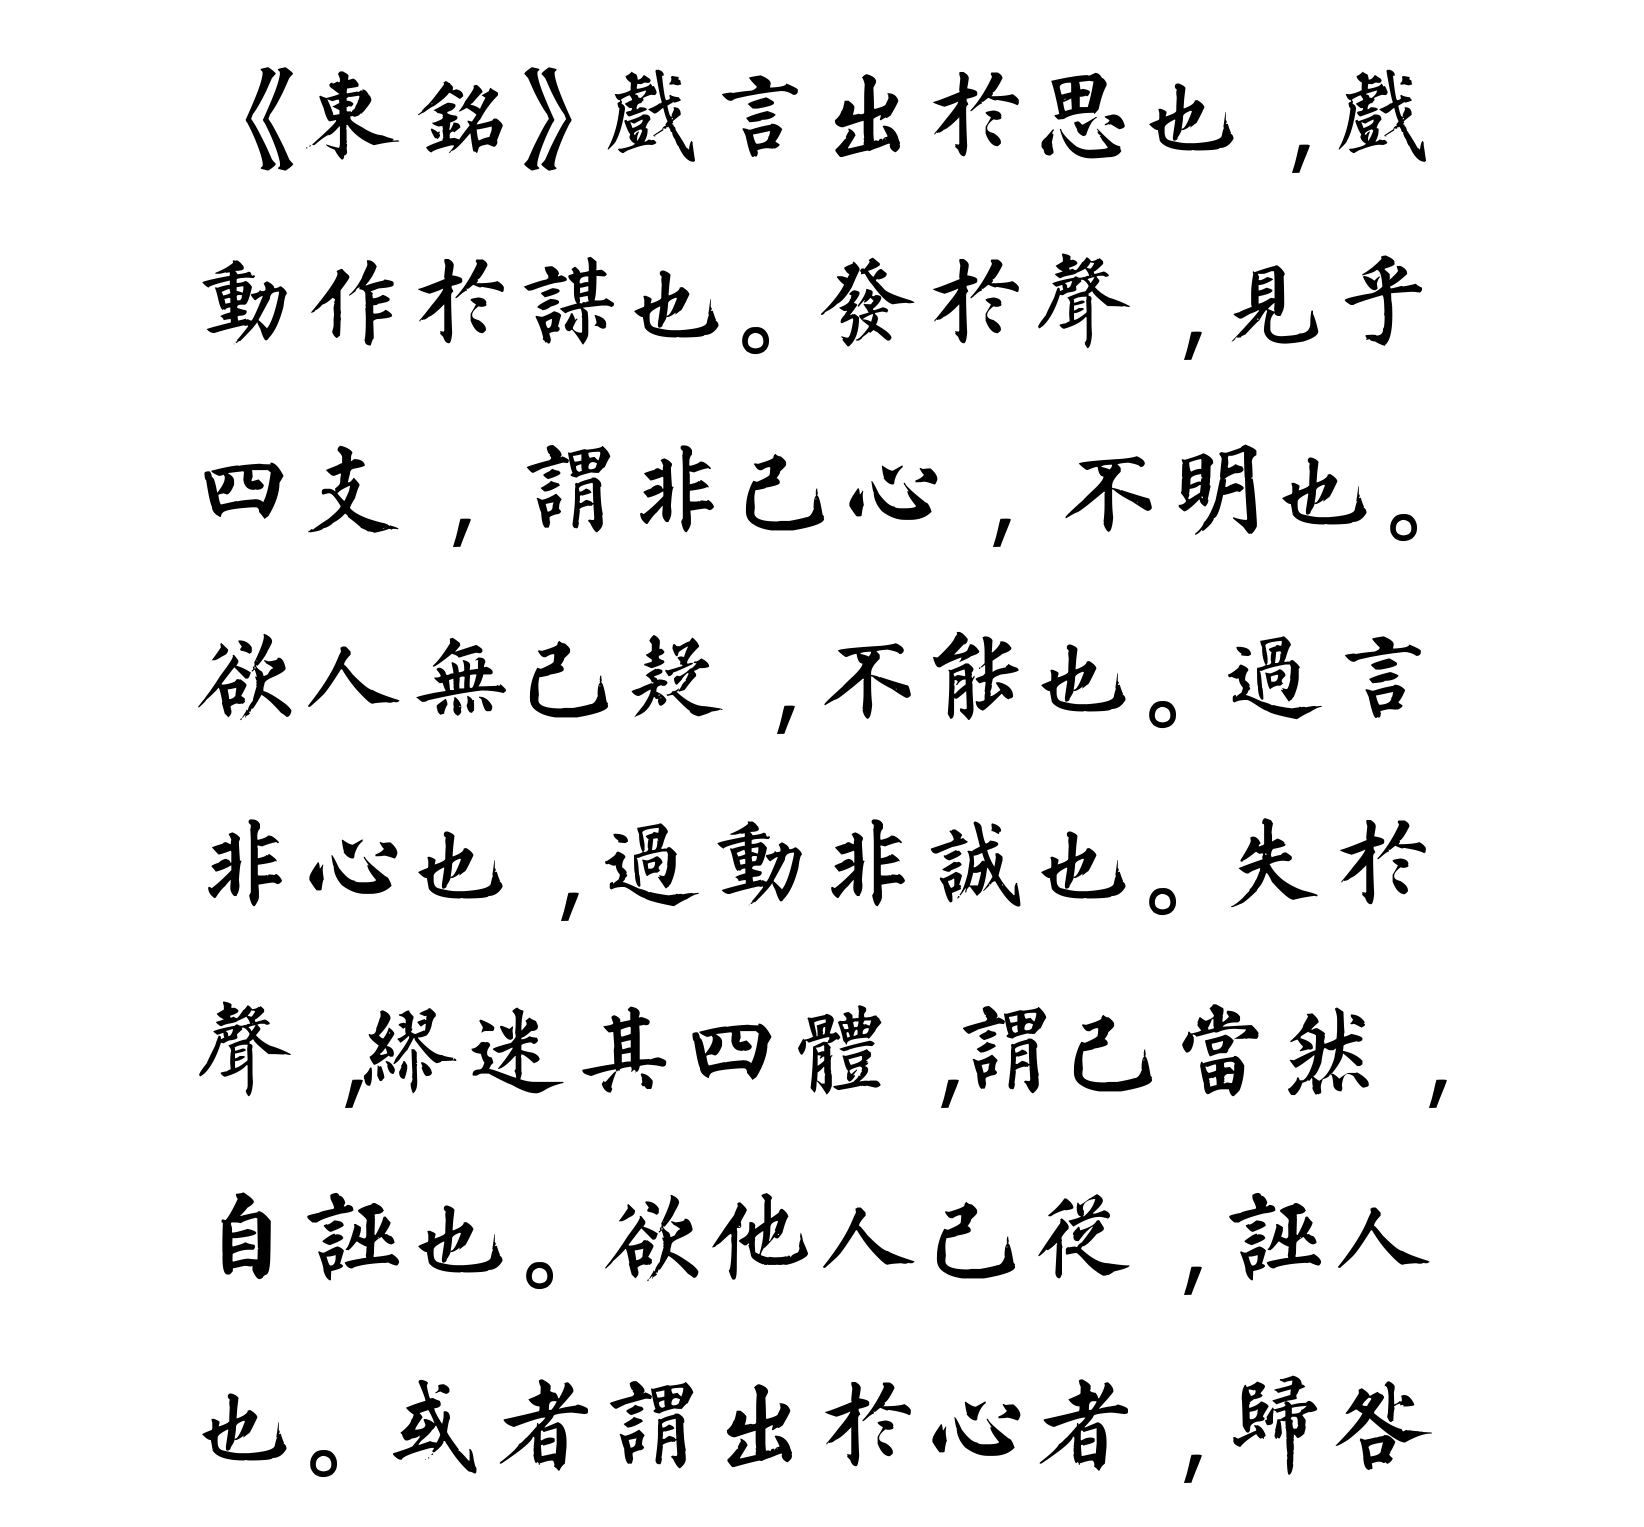 《東銘》戲言出於思也,戲
動作於謀也。發於聲,見乎
四支,謂非己心,不明也。
欲人無己疑,不能也。過言
非心也,過動非誠也。失於
聲,繆迷其四體,謂己當然,
自誣也。欲他人己從,誣人
也。或者謂出於心者,歸咎